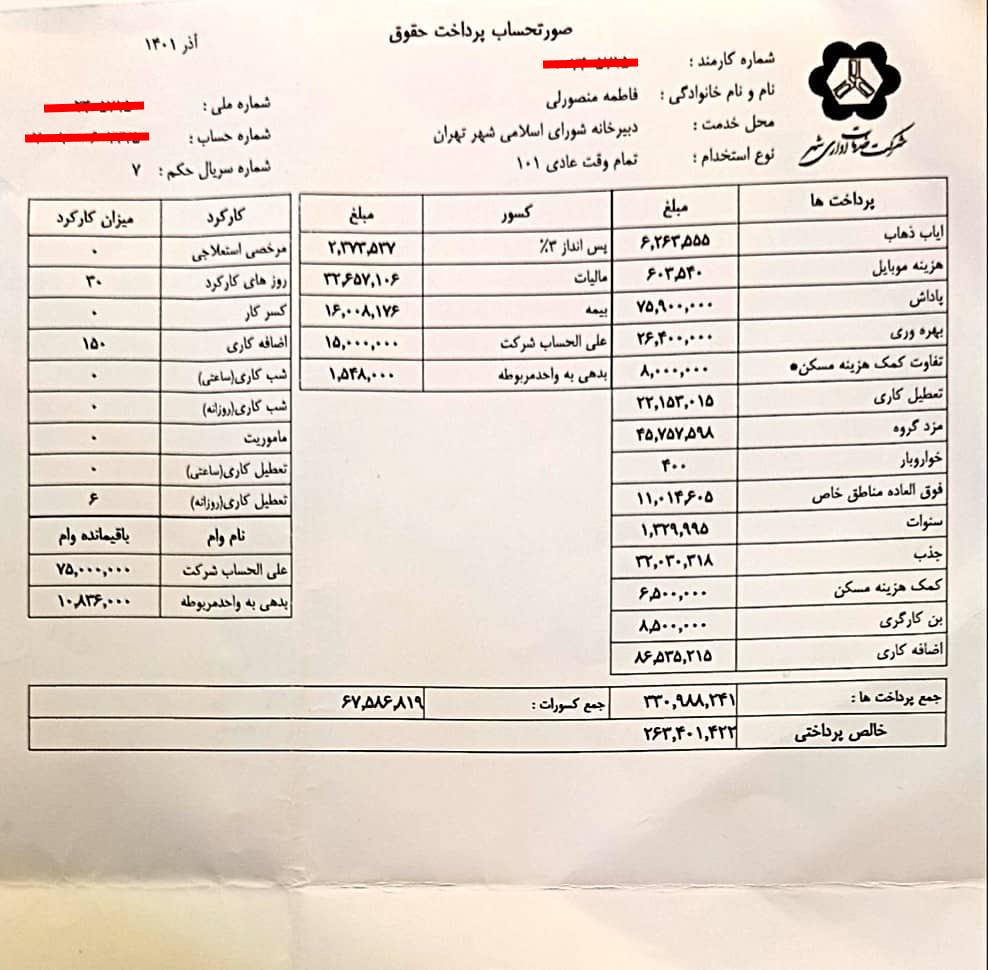 صورتحساب پرداخت حقوق
آذر ۱۴۰۱
شماره کارمند :
نام و نام خانوادگی : فاطمه منصورلی
شماره ملی :
محل خدمت : دبیرخانه شورای اسلامی شهر تهران
شماره حساب :
نوع استخدام : تمام وقت عادی ۱۰۱
شماره سریال حکم : ۷
شرکت اداری شهر
پرداخت ها مبلغ
ایاب ذهاب ۶,۲۶۳,۵۵۵
هزینه موبایل ۶۰۳,۵۴۰
پاداش ۷۵,۹۰۰,۰۰۰
بهره وری ۲۶,۴۰۰,۰۰۰
تفاوت کمک هزینه مسکن* ۸,۰۰۰,۰۰۰
تعطیل کاری ۲۲,۱۵۳,۰۱۵
مزد گروه ۴۵,۷۵۷,۵۹۸
خواروبار ۴۰۰
فوق العاده مناطق خاص ۱۱,۰۱۴,۶۰۵
سنوات ۱,۳۲۹,۹۹۵
جذب ۳۲,۰۳۰,۳۱۸
کمک هزینه مسکن ۶,۵۰۰,۰۰۰
بن کارگری ۸,۵۰۰,۰۰۰
اضافه کاری ۸۶,۵۳۵,۲۱۵
کسور مبلغ
پس انداز ۳% ۲,۳۷۳,۵۳۷
مالیات ۳۲,۶۵۷,۱۰۶
بیمه ۱۶,۰۰۸,۱۷۶
علی الحساب شرکت ۱۵,۰۰۰,۰۰۰
بدهی به واحدمربوطه ۱,۵۴۸,۰۰۰
کارکرد میزان کارکرد
مرخصی استعلاجی ۰
روز های کارکرد ۳۰
کسر کار ۰
اضافه کاری ۱۵۰
شب کاری(ساعتی) ۰
شب کاری(روزانه) ۰
ماموریت ۰
تعطیل کاری(ساعتی) ۰
تعطیل کاری(روزانه) ۶
نام وام باقیمانده وام
علی الحساب شرکت ۷۵,۰۰۰,۰۰۰
بدهی به واحدمربوطه ۱۰,۸۳۶,۰۰۰
جمع پرداخت ها : ۳۳۰,۹۸۸,۲۴۱ جمع کسورات : ۶۷,۵۸۶,۸۱۹
خالص پرداختی ۲۶۳,۴۰۱,۴۲۲